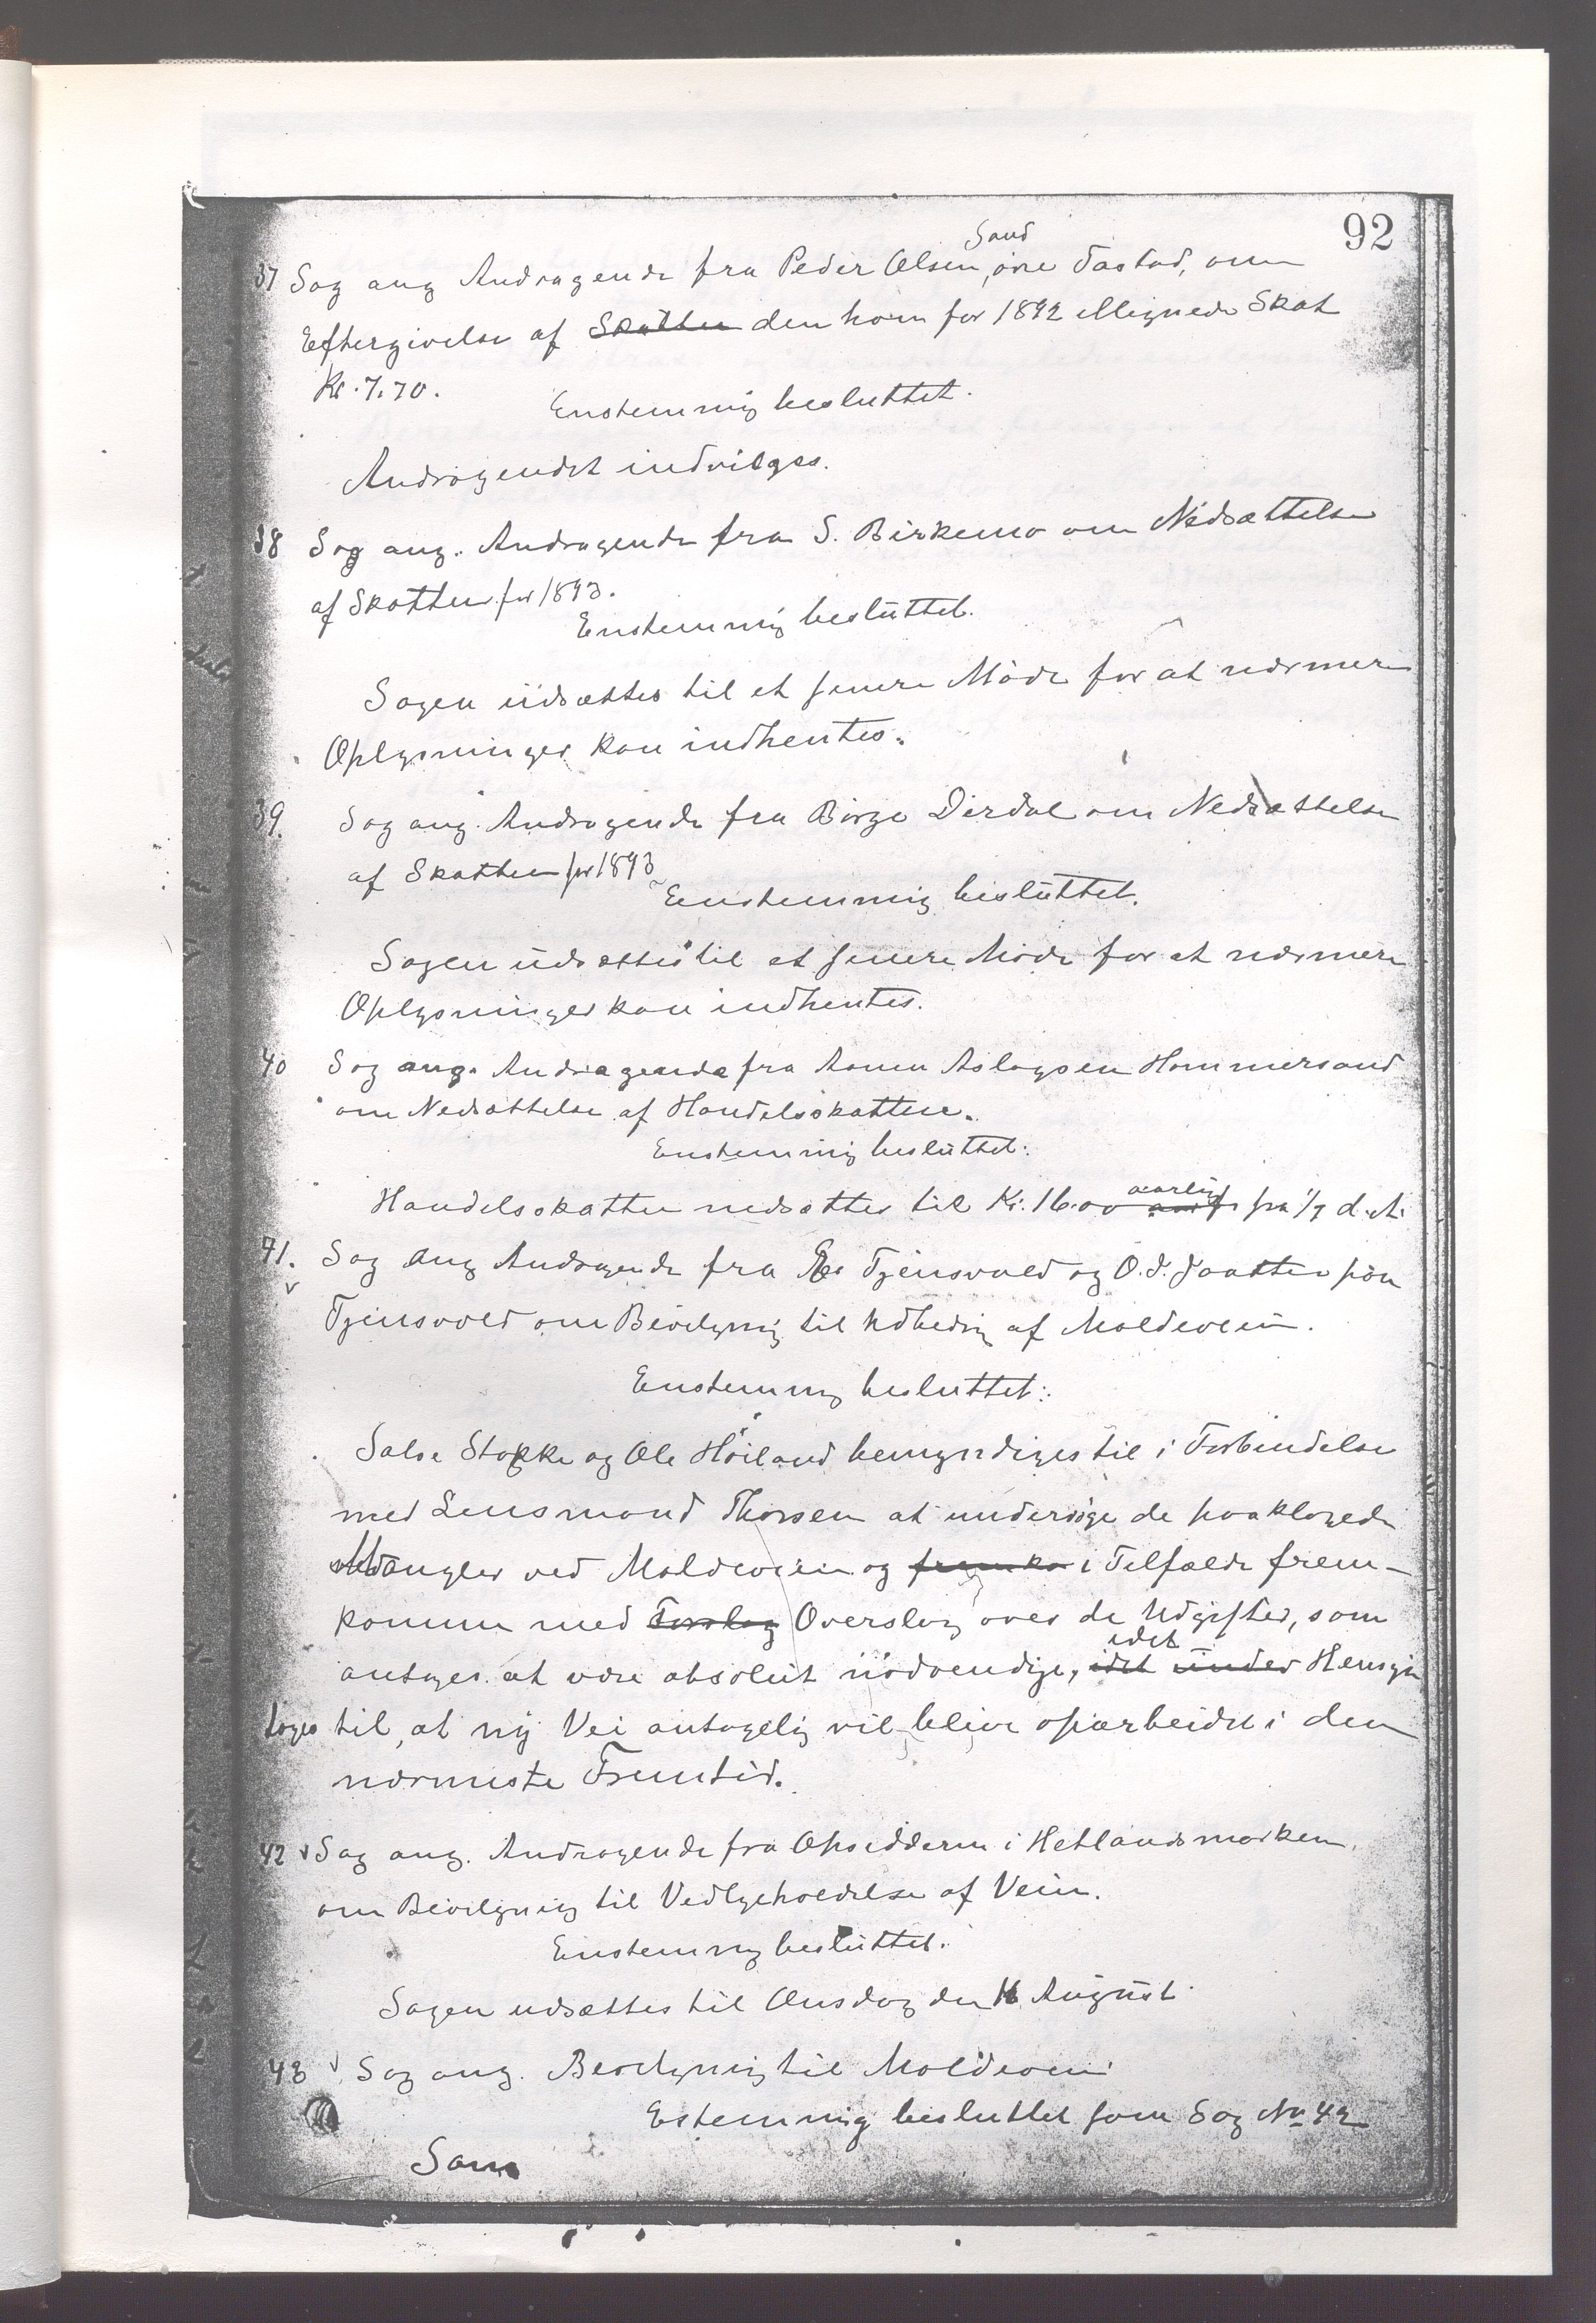 92
Sand
37 Sag ang Andragende fra Peder Olsen, övre Tastad, om
Eftergivelse af Skatten den ham for 1892 illignede Skat
Kr. 7.70.
Enstemmig besluttet.
Andragendet indvilges.
38 Sag ang. Andragende fra S. Birkemo om Nedsættelse
af Skatten for 1893.
Enstemmig besluttet.
Sagen udsættes til et senere Möde for at nærmere
Oplysninger kan indhentes.
39. Sag ang. Andragende fra Börge Dirdal om Nedsættelse
af Skatten for 1893
Enstemmig besluttet.
Sagen udsættes til et senere Möde for at nærmere
Oplysninger kan indhentes.
40 Sag ang. Andragende fra Aslagsen Hommersand
om Nedsættelse af Handelsskatten.
Enstemmig besluttet:
Handelsskatten nedsættes til Kr. 16.00 aarlig fra 1/7 d. A.
41. Sag ang Andragende fra Tjensvold og O. J. Jaatten paa
Tjensvold om Bevilgning til Udbedring af Moldeveien.
Enstemmig besluttet:
Salve Stokke og Ole Höiland bemyndiges til i Forbindelse
med Lensmand Thorsen at undersöge de paaklagede
Mangler ved Moldeveien og fremko i Tilfælde frem-
komme med Forslag Overslag over de Udgifter, som
antages at være absolut nödvendige, idet idet under Hensyn
tages til, at ny Vei antagelig vil blive oparbeidet i den
nærmeste Fremtid.
42 Sag ang. Andragende fra Opsidderne i Hetlandsmarken
om Bevilgning til Vedligeholdelse af Veien.
Enstemmig besluttet.
Sagen udsættes til Onsdag den 16 August
43 Sag ang. Bevilgning til Moldeveien
Estemmig besluttet som Sag No 42
Sam